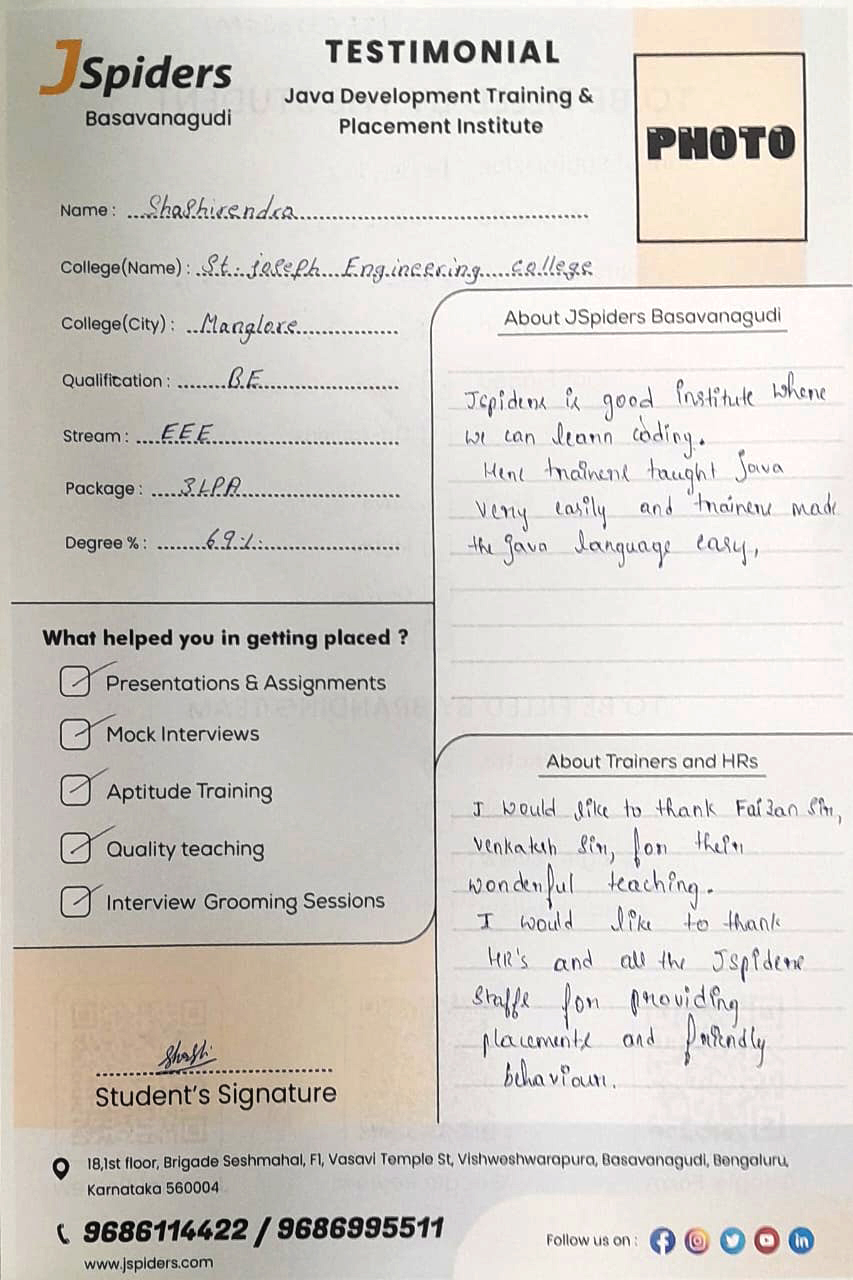 JSpiders
Basavanagudi
TESTIMONIAL
Java Development Training &
Placement Institute
PHOTO
Name : Shashirendra
College(Name) : St. joseph Engineering college
College(City) : Manglore
Qualification : B.E
Stream : EEE
Package : 3LPA
Degree % : 69%
What helped you in getting placed ?
Presentations & Assignments
Mock Interviews
Aptitude Training
Quality teaching
Interview Grooming Sessions
Shashi
Student's Signature
About JSpiders Basavanagudi
Jspiders is good institute where
we can learn coding.
Here trainers taught Java
very easily and trainers made
the java language easy,
About Trainers and HRs
I would like to thank Faizan Sir,
Venkatesh Sir, for their
wonderful teaching.
I would like to thank
HR's and all the Jspiders
staffs for providing
placements and friendly
behaviour.
18,1st floor, Brigade Seshmahal, F1, Vasavi Temple St, Vishweshwarapura, Basavanagudi, Bengaluru,
Karnataka 560004
9686114422 / 9686995511
www.jspiders.com
Follow us on :